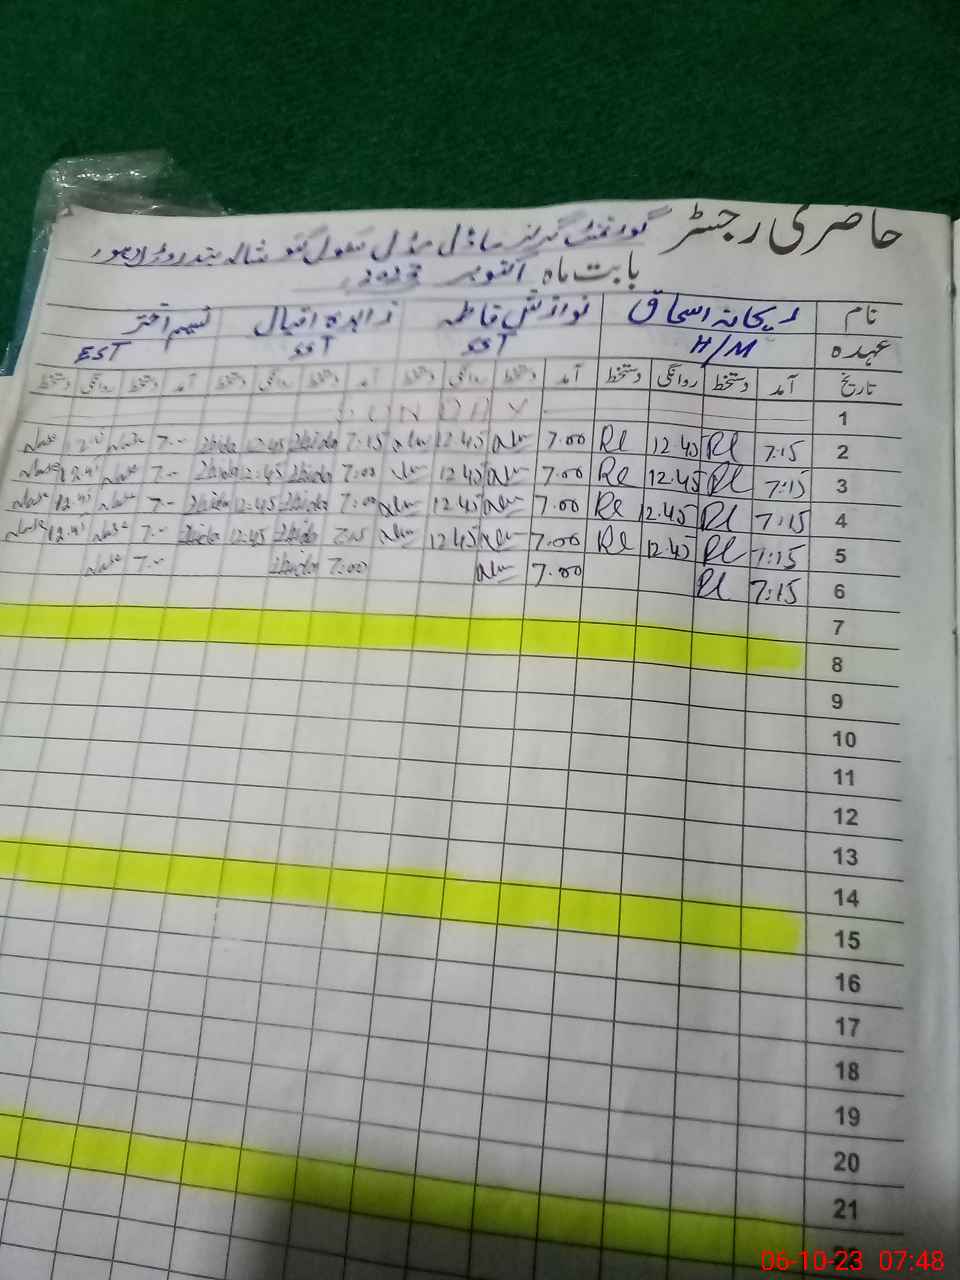 حاضری رجسٹر گورنمنٹ گرلز ماڈل مڈل سکول گئو شالہ بند روڈ لاہور
بابت ماہ اکتوبر 2023
نام ریحانہ اسحاق نوازش فاطمہ زاہدہ اقبال نسیم اختر
عہدہ H/M SST SST EST
تاریخ آمد دستخط روانگی دستخط آمد دستخط روانگی دستخط آمد دستخط روانگی دستخط آمد دستخط روانگی دستخط
1 S U N D A Y
2 7:15 Rl 12.45 Rl 7.00 12.45 7:15 Zahida 12:45 Zahida 7.--
3 7:15 Rl 12.45 Rl 7.00 12.45 7:00 Zahida 12:45 Zahida 7.-- 12.45
4 7:15 Rl 12.45 Rl 7.00 12.45 7:00 Zahida 12:45 Zahida 7.-- 12.45
5 7:15 Rl 12.45 Rl 7.00 12.45 Zahida 12:45 Zahida 7.-- 12.45
6 7:15 Rl 7.00 Zahida 7:00 7.--
7
8
9
10
11
12
13
14
15
16
17
18
19
20
21
06-10-23 07:48